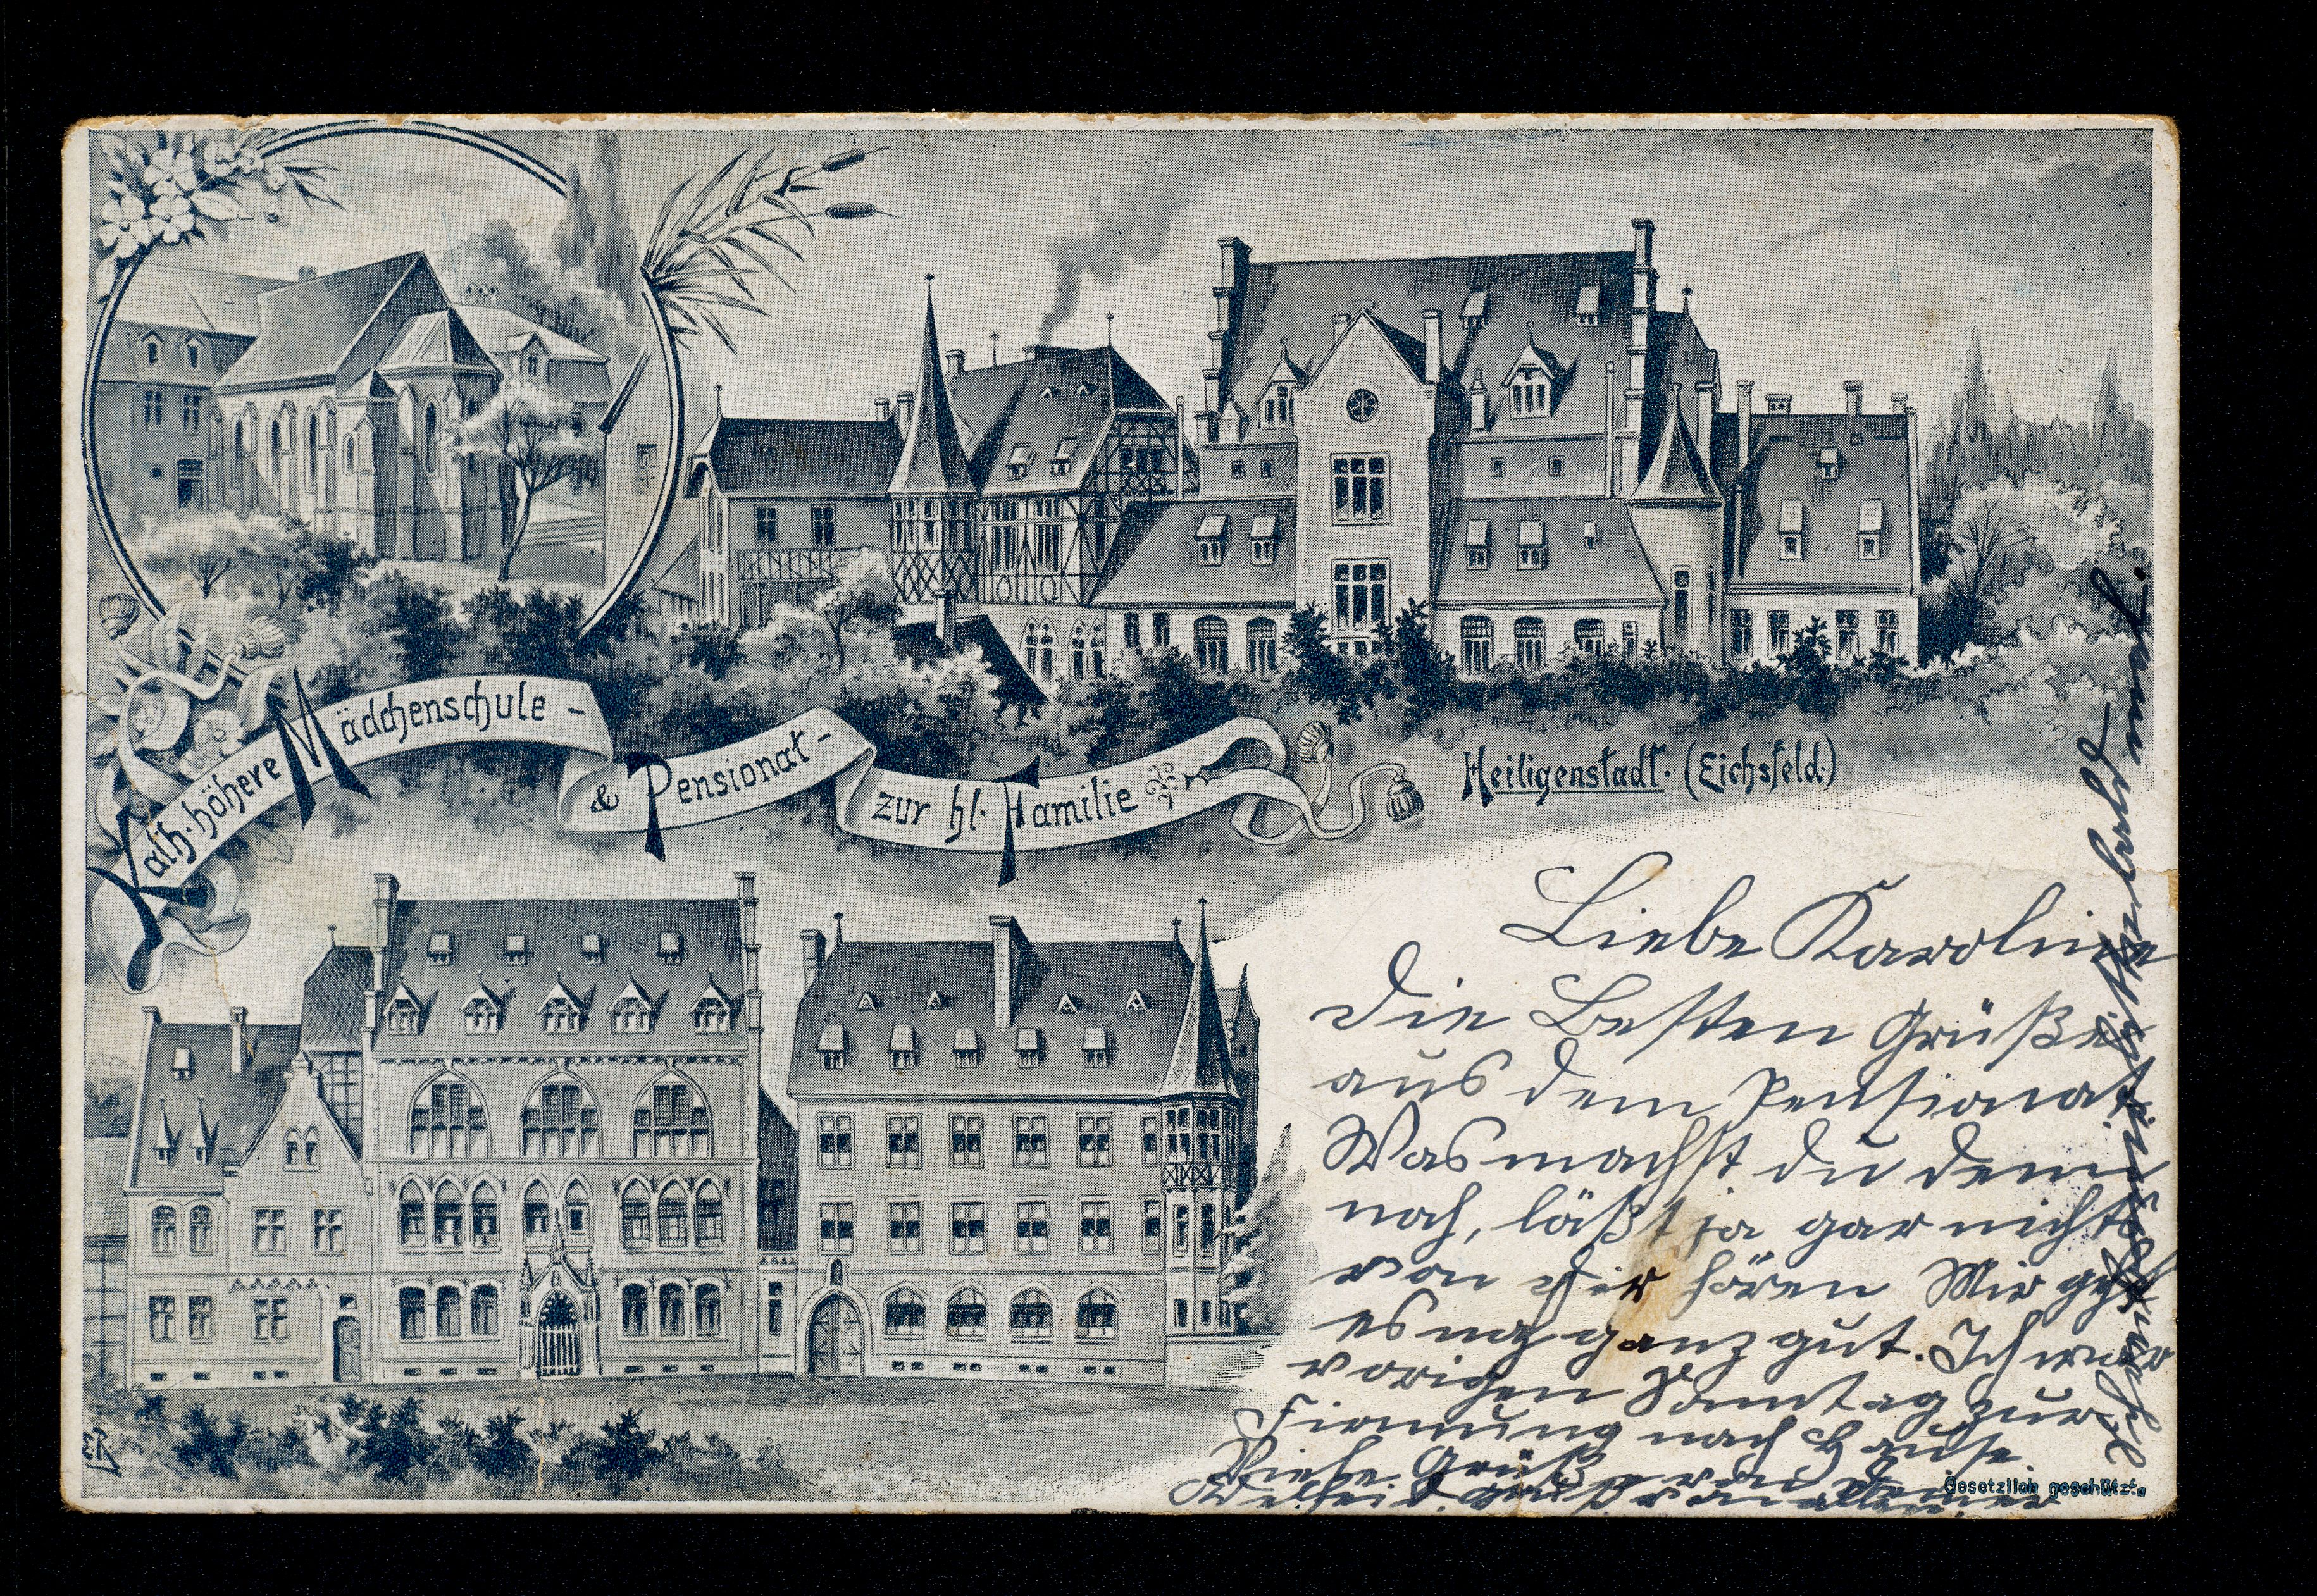 Kath. höhere Mädchenschule -
& Pensionat -
zur hl. Familie
Heiligenstadt. (Eichsfeld.)
Liebe Karoline
Die Besten Grüße
aus dem Pensionat.
Was machst du denn
noch, läßt ja gar nichts
von dir hören Mir geht
es noch ganz gut. Ich war
vorigen Sonntag zur
Firmung nach Hause.
Viele Grüße von deiner
Gesetzlich geschützt.